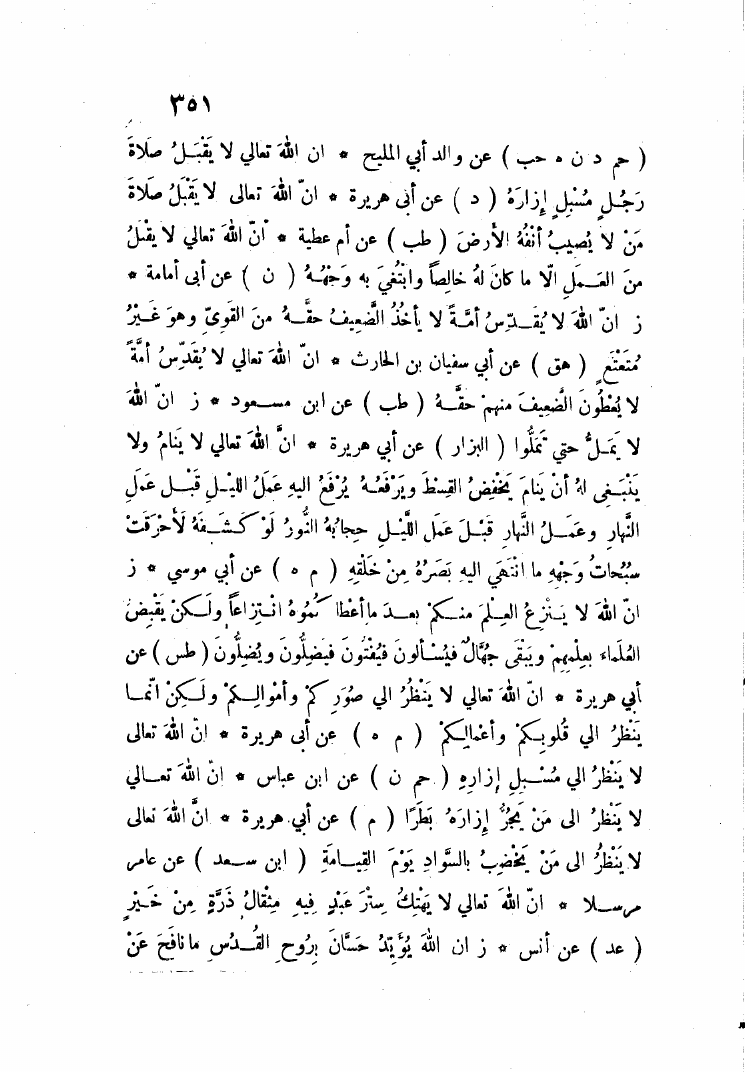 ٣٥١
( حم د ن ه حب ) عن والد أبي المليح * ان اللهَ تعالي لا يَقْبَلُ صَلَاةَ
رَجُلٍ مُسْبِلٍ إِزَارَهُ ( د ) عن أبى هريرة * انّ اللهَ تعالى لا يَقْبَلُ صَلَاةَ
مَنْ لا يُصِيبُ أَنْفُهُ الأرضَ ( طب ) عن أم عطية * انّ اللهَ تعالي لا يقْبَلُ
منَ العَمَلِ الّا ما كانَ لهُ خالِصاً وابْتُغِيَ به وَجْهُهُ ( ن ) عن أبى أمامة *
ز انّ اللهَ لا يُقَدِّسُ أُمَّةً لا يأخُذُ الضَّعِيفُ حقَّهُ منَ القَوِىّ وهوَ غَيْرُ
مُتَعْتَعٍ ( هق ) عن أبي سفيان بن الحارث * انّ اللهَ تعالي لا يُقَدِّسُ أُمَّةً
لا يُعْطُونَ الضَّعِيفَ منهمْ حقَّهُ ( طب ) عن ابن مسعود * ز انّ اللهَ
لا يَمَلُّ حتي تَمَلُّوا ( البزار ) عن أبي هريرة * انَّ اللهَ تعالي لا يَنامُ ولا
يَنْبَغِى لهُ أنْ يَنامَ يَخْفِضُ القِسْطَ ويَرْفَعُهُ يُرْفَعُ اليهِ عَمَلُ الليْلِ قَبْلَ عَمَلِ
النَّهارِ وعَمَلُ النَّهارِ قَبْلَ عَمَلِ اللَّيْلِ حِجابُهُ النُّورُ لَوْ كَشَفَهُ لَأَحْرَقَتْ
سُبُحاتُ وَجْهِهِ ما انْتَهَي اليهِ بَصَرُهُ مِنْ خَلْقِهِ ( م ه ) عن أبي موسي * ز
انّ اللهَ لا يَنْزِعُ العِلْمَ منكمْ بعدَ ما أعْطاكُمُوهُ انْتِزاعاً ولَكنْ يَقْبِضُ
العُلَماءَ بعِلْمِهِمْ ويَبْقَى جُهَّالٌ فيُسْألونَ فيُفْتُونَ فيَضِلُّونَ ويُضِلُّونَ ( طس ) عن
أبي هريرة * انّ اللهَ تعالي لا يَنْظُرُ الي صُوَرِكُمْ وأمْوالِكمْ ولَكِنْ انّما
يَنْظُرُ الي قُلوبِكمْ وأعمالِكمْ ( م ه ) عن أبى هريرة * انّ اللهَ تعالى
لا يَنْظُرُ الي مُسْبِلِ إزارِهِ ( حم ن ) عن ابن عباس * انّ اللهَ تعالي
لا يَنْظُرُ الى مَنْ يَجُرُّ إِزارَهُ بَطَرًا ( م ) عن أبي هريرة * انَّ اللهَ تعالى
لا يَنْظُرُ الى مَنْ يَخْضِبُ بالسَّوادِ يَوْمَ القِيامَةِ ( ابن سعد ) عن عامر
مرسلا * انّ اللهَ تعالي لا يَهْتِكُ سِتْرَ عَبْدٍ فِيهِ مِثْقالُ ذَرَّةٍ مِنْ خَيْرٍ
( عد ) عن أنس * ز ان اللهَ يُؤَيِّدُ حَسَّانَ بِرُوحِ القُدُسِ ما نافَحَ عَنْ